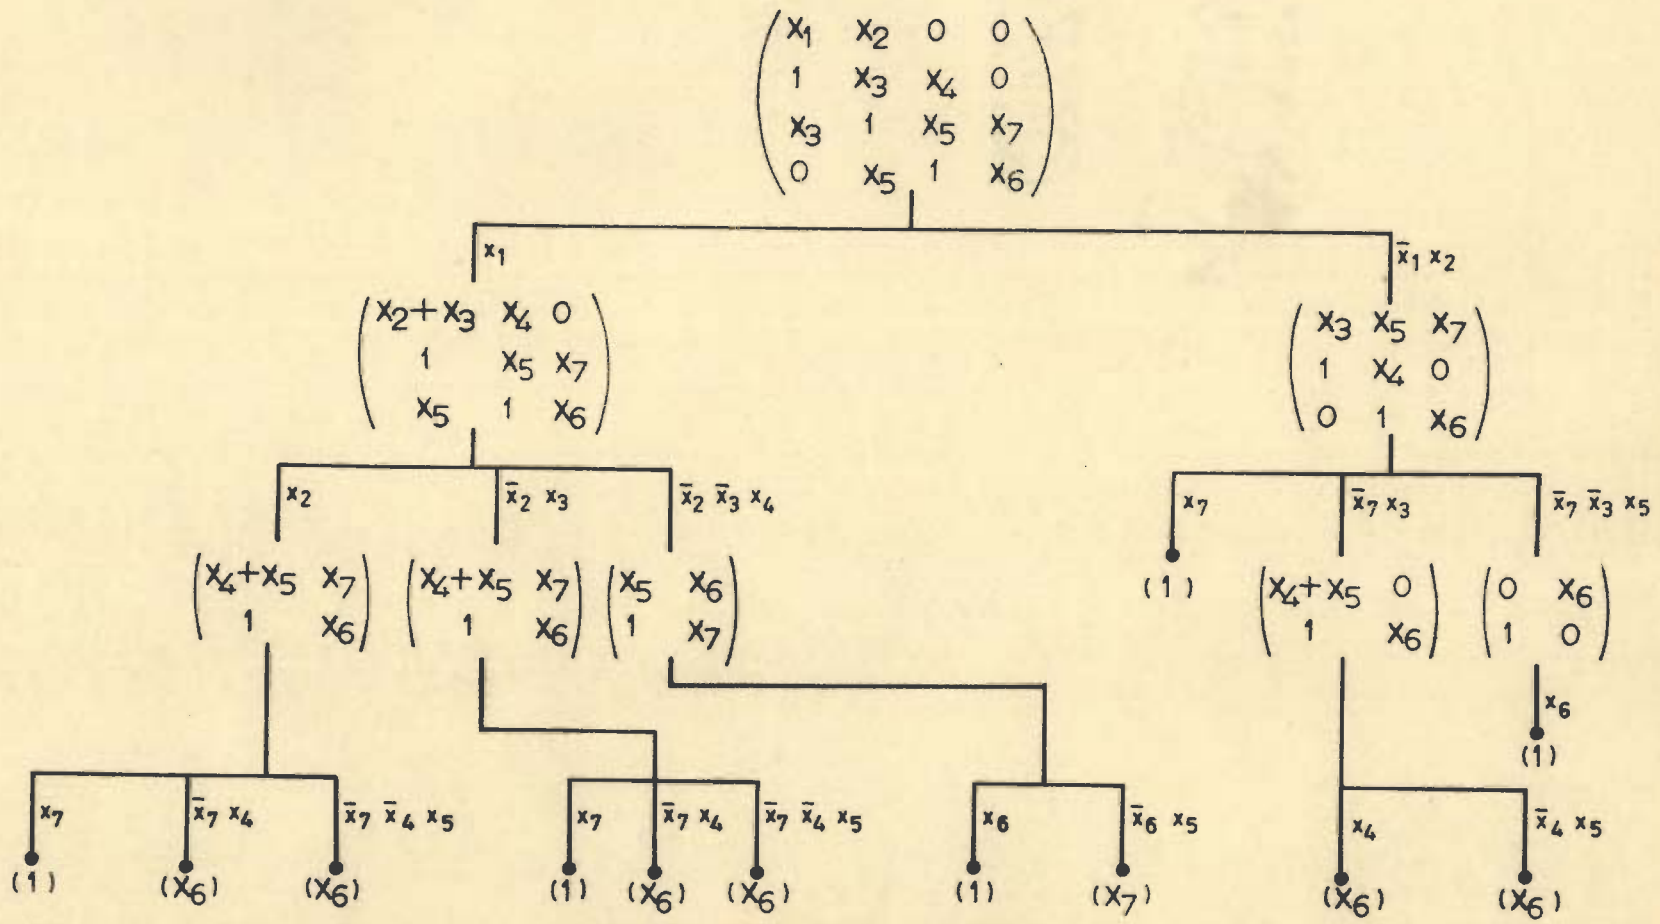 x1 x2 0 0
1 x3 x4 0
x3 1 x5 x7
0 x5 1 x6
x1
x̄1 x2
x2+x3 x4 0
1 x5 x7
x5 1 x6
x3 x5 x7
1 x4 0
0 1 x6
x2
x̄2 x3
x̄2 x̄3 x4
x7
x̄7 x3
x̄7 x̄3 x5
x4+x5 x7
1 x6
x4+x5 x7
1 x6
x5 x6
1 x7
(1)
x4+x5 0
1 x6
0 x6
1 0
x6
(1)
x7
x̄7 x4
x̄7 x̄4 x5
x7
x̄7 x4
x̄7 x̄4 x5
x6
x̄6 x5
x4
x̄4 x5
(1) (x6) (x6) (1) (x6) (x6) (1) (x7) (x6) (x6)